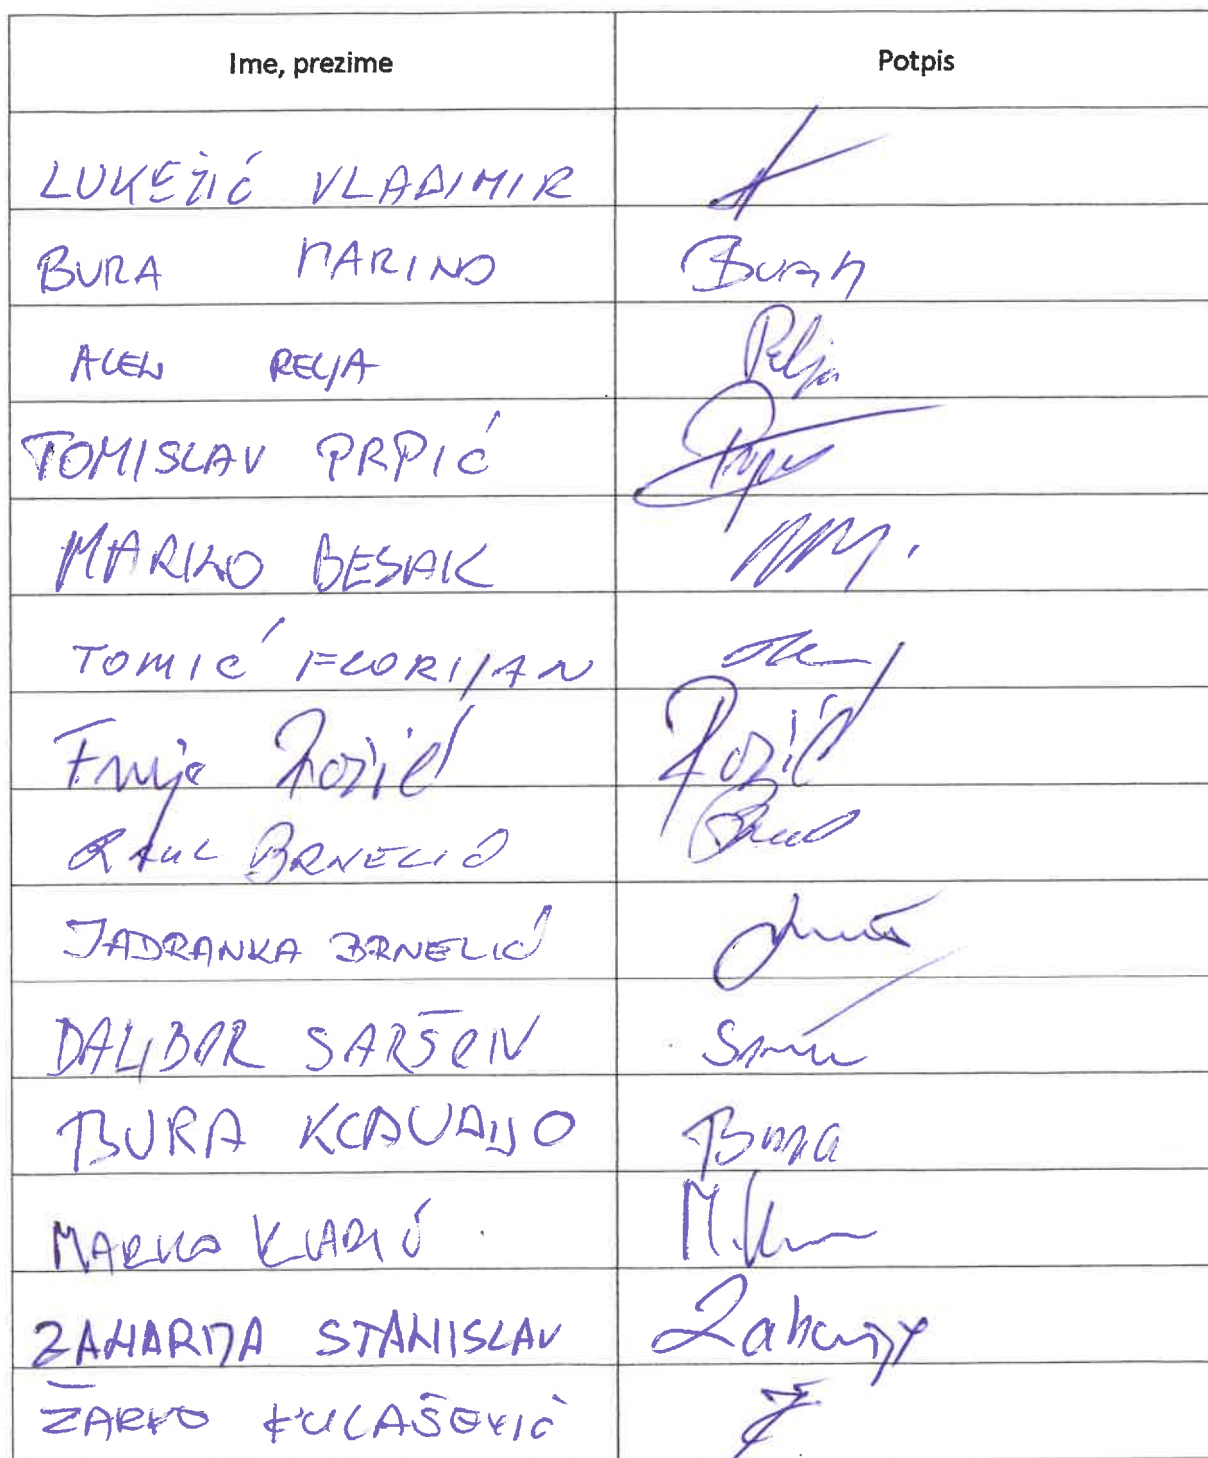 Ime, prezime Potpis
LUKEŽIĆ VLADIMIR
BURA MARINO Bura M
ALEN RELJA Relja
TOMISLAV PRPIĆ
MARINO BESAK
TOMIĆ FLORIJAN
Franje Rožić Rožić
RAUL BRNELIĆ
JADRANKA BRNELIĆ
DALIBOR SARŠON
BURA KLAUDIJO Bura
MARKO KLARIĆ
ZAHARIJA STANISLAV Zaharija
ŽARKO KULAŠEVIĆ